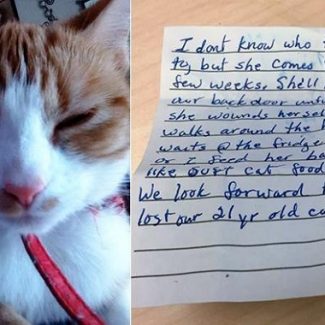 I dont know who
ty but she comes
few weeks. She'll
our back door unt
she wounds herse
walks around the
waits @ the fridge
or I feed her be
like our cat food
We look forward
lost our 21 yr old ca